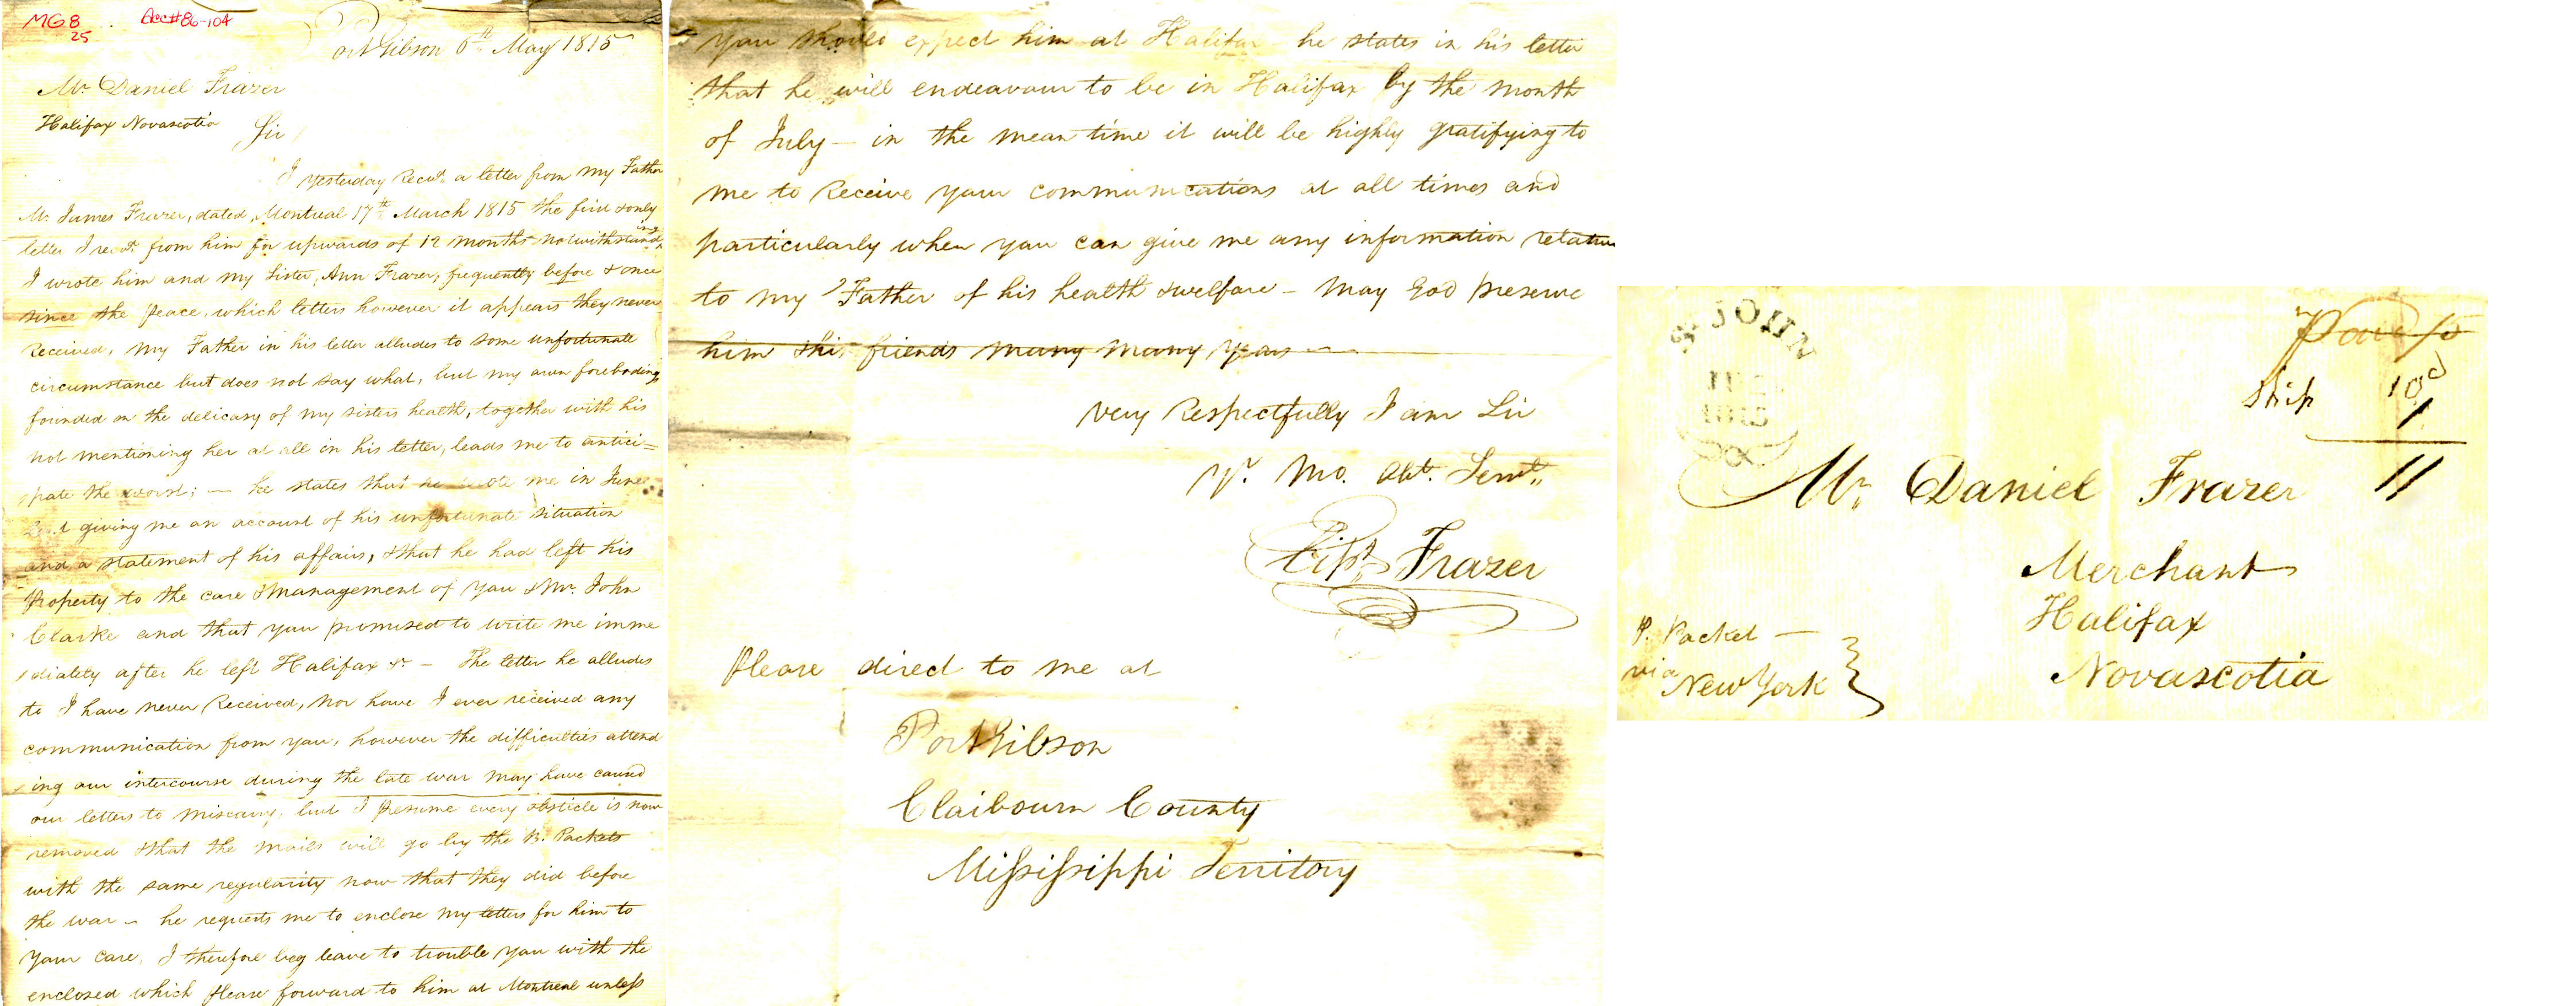 MG8
25
Acc#86-104
Port Gibson 6th May 1815
Mr Daniel Frazer
Halifax Novascotia
Sir
I yesterday Recd. a letter from my Father
Mr James Frazer, dated, Montreal 17th March 1815 the first & only
letter I recd. from him for upwards of 12 months notwithstanding
I wrote him and my Sister, Ann Frazer, frequently before & once
since the peace, which letters however it appears they never
Received, My Father in his letter alludes to some unfortunate
circumstance but does not say what, but my own forebodings
founded on the delicacy of my sisters health, together with his
not mentioning her at all in his letter, leads me to antici=
pate the worst; — he states that he wrote me in June
giving me an account of his unfortunate situation
and a statement of his affairs, & that he had left his
Property to the care & management of you & Mr. John
Clarke and that you promised to write me imme
diately after he left Halifax &c — The letter he alludes
to I have never Received, nor have I ever received any
communication from you, however the difficulties attend
ing our intercourse during the late war may have caused
our letters to miscarry, but I presume every obsticle is now
removed & that the mails will go by the B. Packets
with the same regularity now that they did before
the war — he requests me to enclose my letters for him to
your care, I therefore beg leave to trouble you with the
enclosed which please forward to him at Montreal unless
you should expect him at Halifax — he states in his letter
that he will endeavour to be in Halifax by the month
of July — in the mean time it will be highly gratifying to
me to Receive your communications at all times and
particularly when you can give me any information relative
to my Father of his health & welfare — May God preserve
him & his friends many many years —
Very Respectfully I am Sir
Yr. Mo. Obt. Servt.
Frazer
Please direct to me at
Port Gibson
Claibourn County
Mississippi Territory
St JOHN
Ship 10d
1
11
Mr. Daniel Frazer
Merchant
Halifax
Novascotia
P. Packet —
via
New York